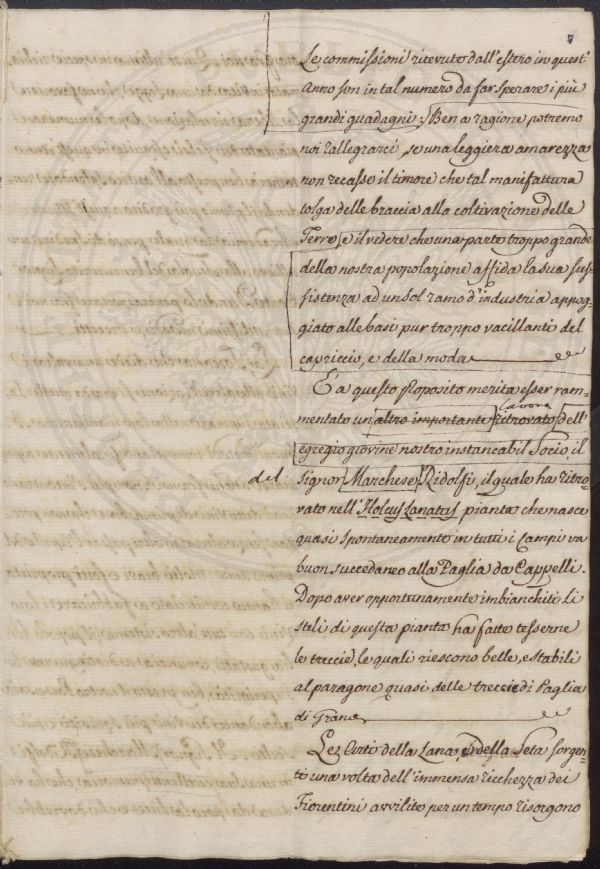 7
Le commissioni ricevute dall'estero in quest'
Anno son in tal numero da far sperare i più
grandi guadagni: Ben a ragione potremo
noi rallegrarci, se una leggiera amarezza
non recasse il timore che tal manifattura
tolga delle braccia alla coltivazione delle
Terre, e il vedere che una parte troppo grande
della nostra popolazione affida la sua sus-
sistenza ad un sol ramo d'industria appog-
giato alle basi pur troppo vacillanti del
capriccio, e della moda
E a questo proposito merita esser ram-
lavoro
mentato un altro importante ritrovato dell'
egregio giovine nostro instancabil Socio, il
del Signor Marchese Ridolfi, il quale ha ritro-
vato nell'Holcus Lanatus pianta che nasce
quasi spontaneamente in tutti i Campi un
buon succedaneo alla Paglia da Cappelli.
Dopo aver opportunamente imbianchiti li
steli di questa pianta ha fatto tesserne
le treccie, le quali riescono belle, e stabili
al paragone quasi delle treccie di Paglia
di Grano
Le Arti della Lana, e della Seta sorgen-
ti una volta dell'immensa ricchezza dei
Fiorentini avvilite per un tempo risorgono